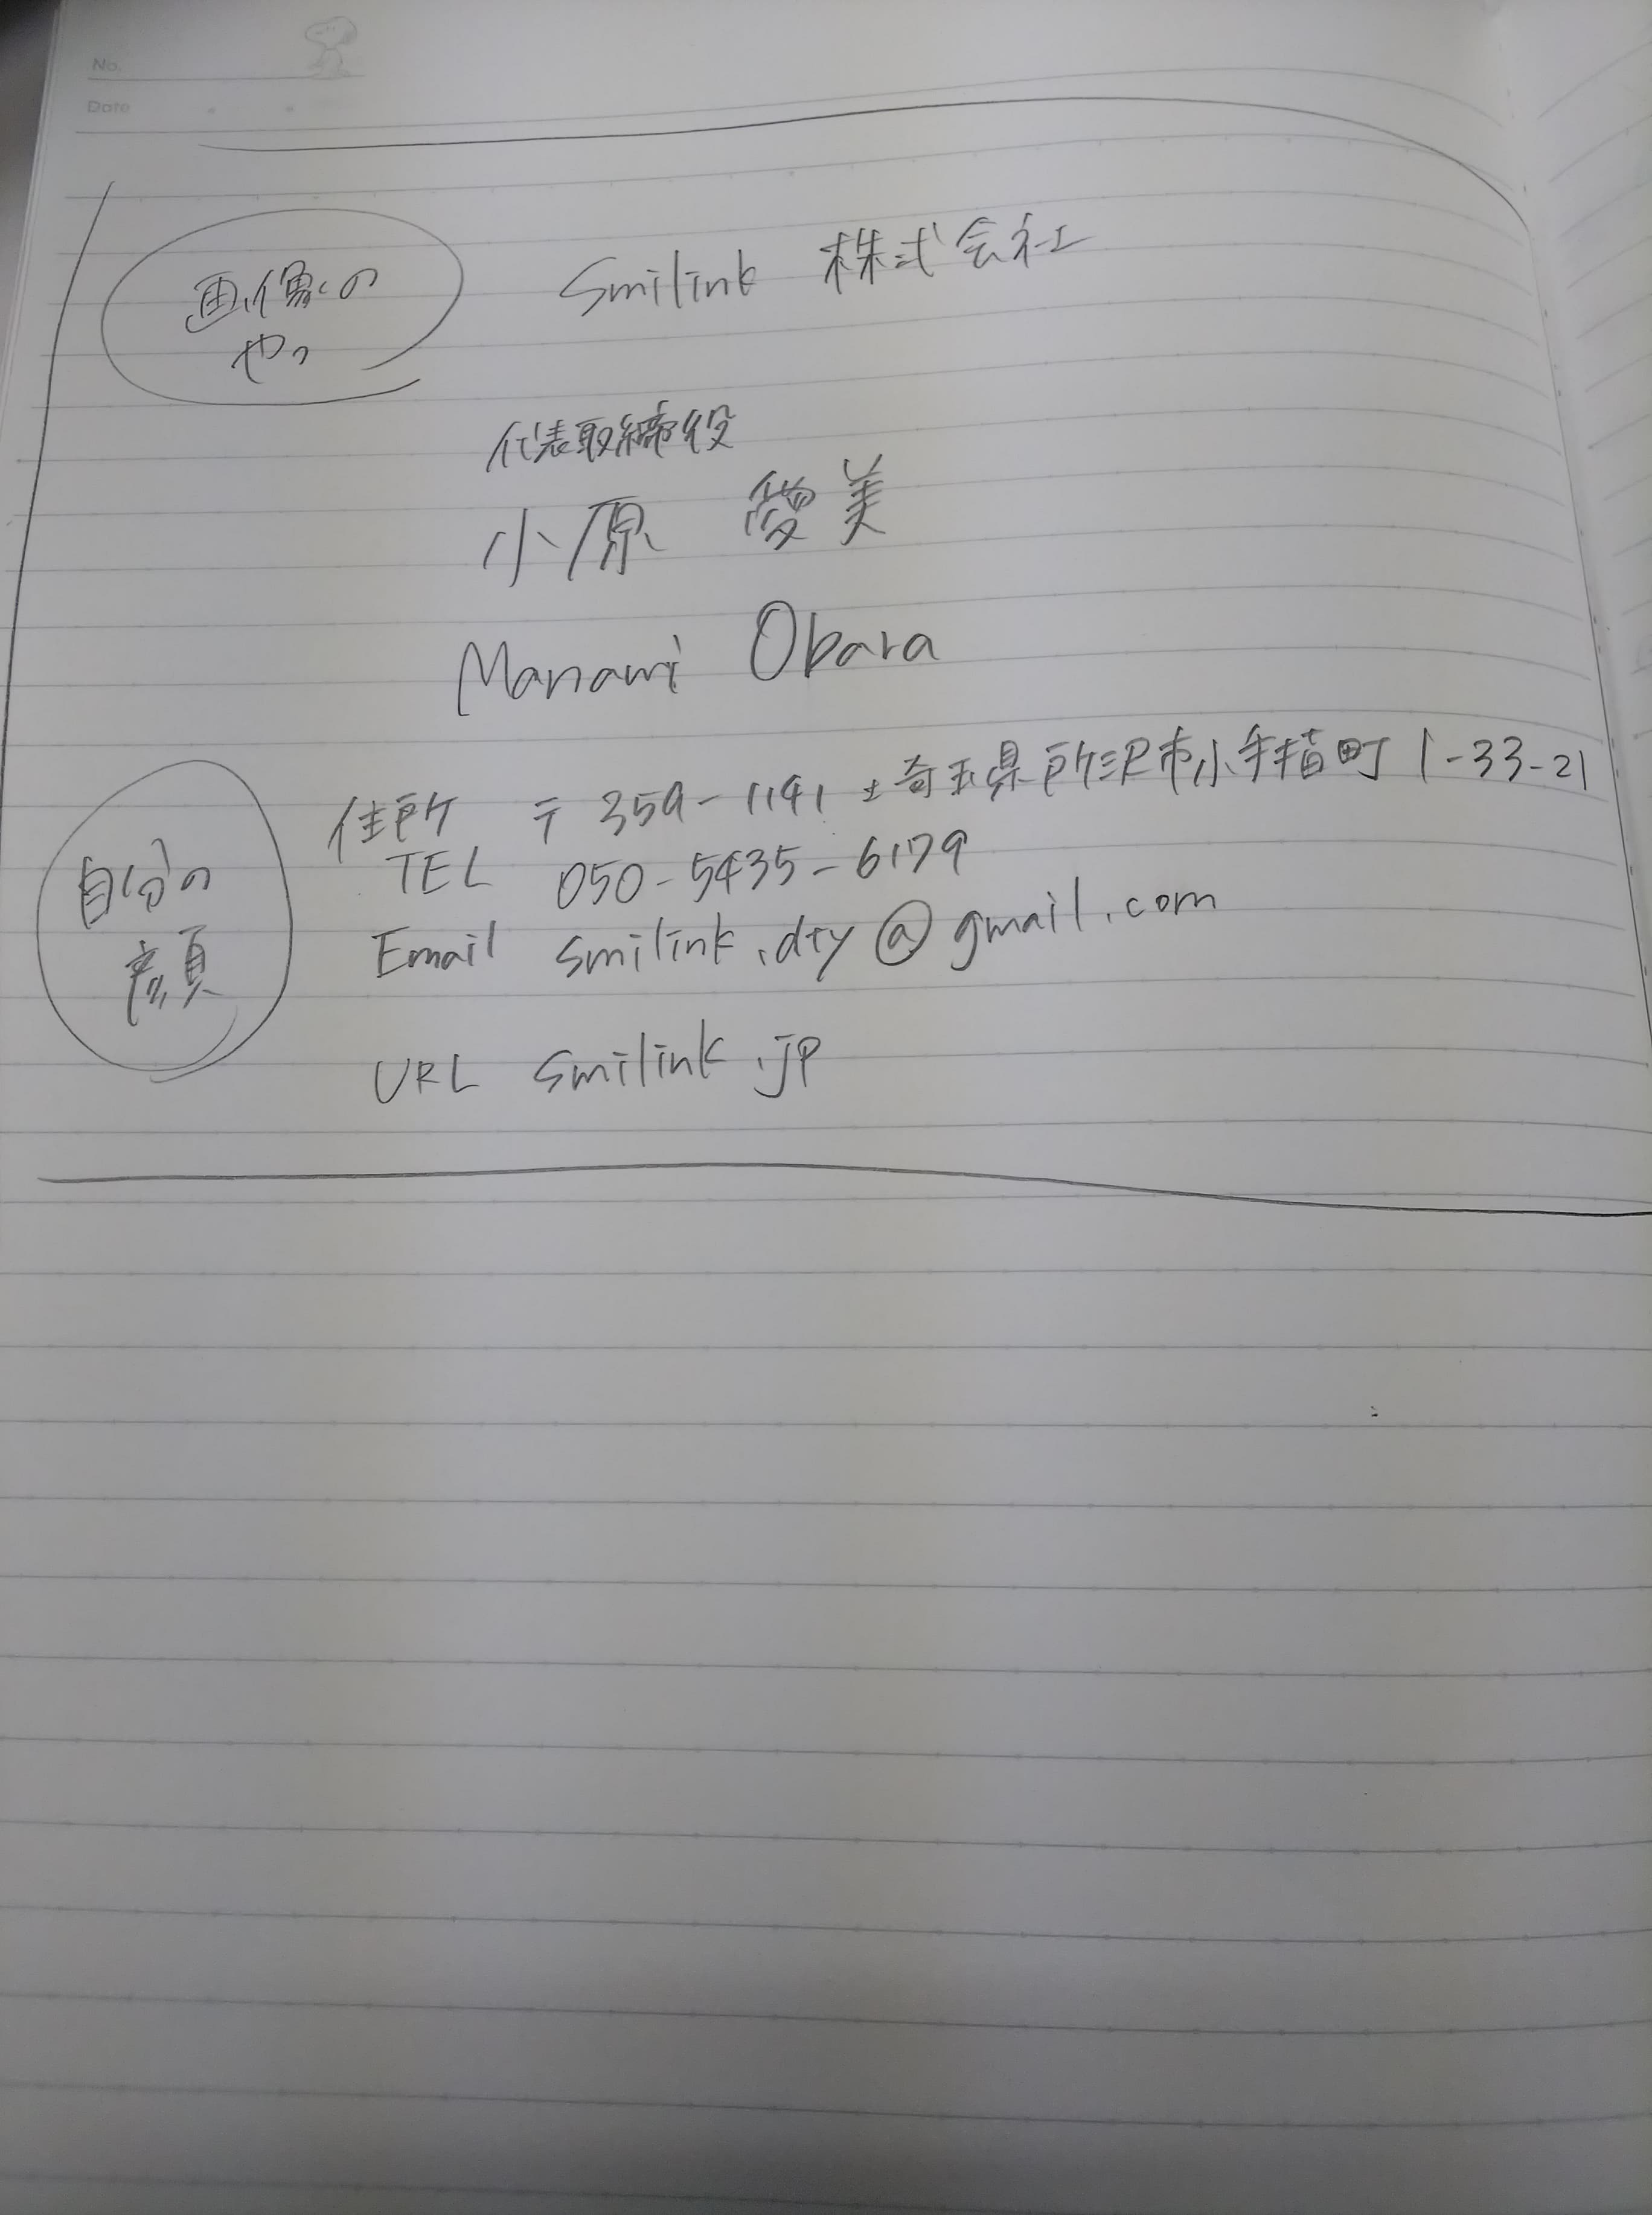 No.
Date
画像の
やつ
Smilink 株式会社
代表取締役
小原 愛美
Manami Obara
住所 〒 359-1141 埼玉県所沢市小手指町 1-33-21
TEL 050-5435-6179
自分の
顔
Email smilink.dty@gmail.com
URL smilink.jp